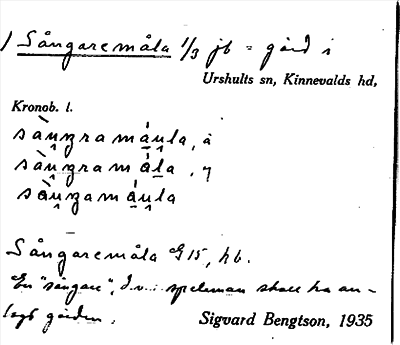 1 Sångaremåla 1/3 jb = gård i
Urshults sn, Kinnevalds hd,
Kronob. l.
sàu̯ŋramáu̯la, å
sàu̯ŋramåla, y
sàu̯ŋamáu̯la
Sångaremåla G 15, hb.
En "sångare", d.v.s. speleman skall ha an-
lagt gården.
Sigvard Bengtson, 1935